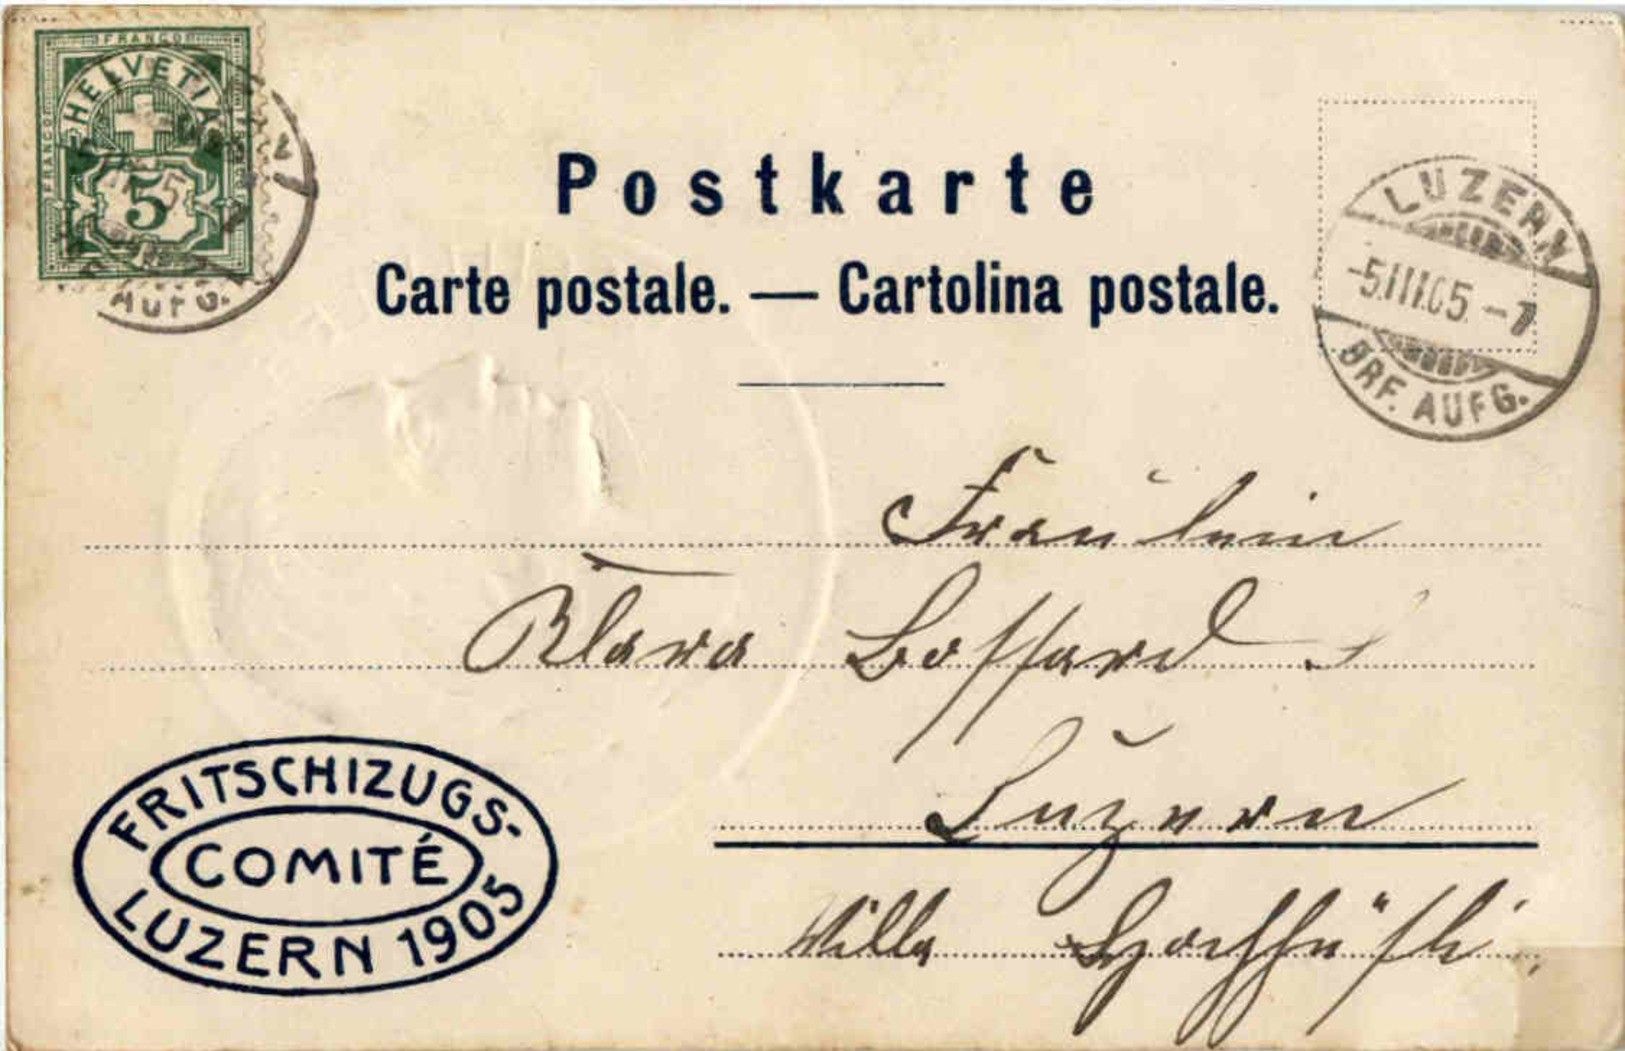 FRANCO
HELVETIA
FRANCO
5
AUFG.
Postkarte
Carte postale. — Cartolina postale.
LUZERN
-5.III.05.-7
BRF. AUFG.
Fräulein
Klara Bossard
Luzern
Villa
FRITSCHIZUGS-
COMITÉ
LUZERN 1905